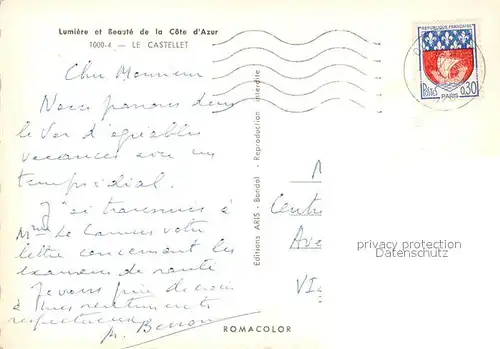 Lumière et Beauté de la Côte d'Azur
1000-4 — LE CASTELLET
RÉPUBLIQUE FRANÇAISE
Postes 0,30
PARIS
Cher Monsieur
Nous passons dans
le Var d'agréables
vacances avec un
temps idéal.
J'ai transmis à
Mme Le Camus votre
lettre concernant les
examens de santé
Je vous prie de croire
à mes sentiments
respectueux
Editions ARIS - Bandol - Reproduction interdite
Cent
Ave
VI
privacy protection
Datenschutz
ROMACOLOR